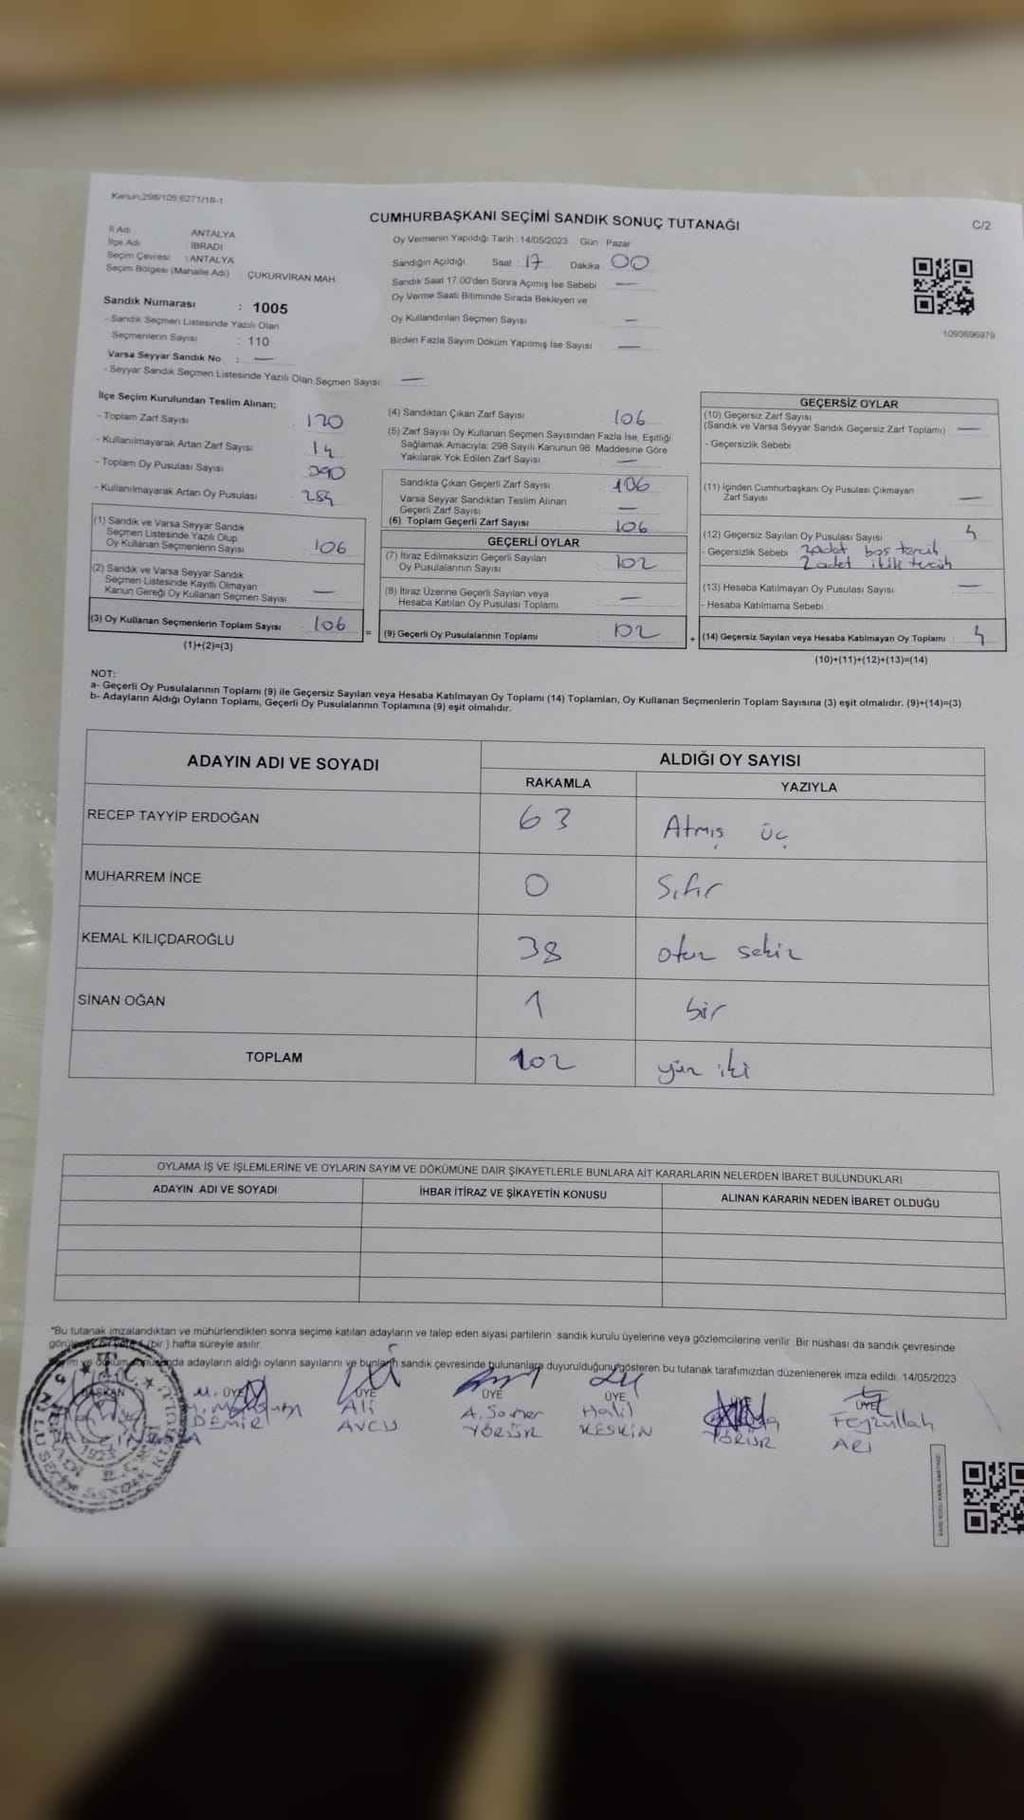 Kanun:298/105;6271/18-1
CUMHURBAŞKANI SEÇİMİ SANDIK SONUÇ TUTANAĞI
C/2
İl Adı ANTALYA
İlçe Adı İBRADI
Seçim Çevresi : ANTALYA
Seçim Bölgesi (Mahalle Adı) ÇUKURVİRAN MAH.
Sandık Numarası : 1005
- Sandık Seçmen Listesinde Yazılı Olan
Seçmenlerin Sayısı : 110
Varsa Seyyar Sandık No : —
- Seyyar Sandık Seçmen Listesinde Yazılı Olan Seçmen Sayısı —
Oy Vermenin Yapıldığı Tarih : 14/05/2023 Gün Pazar
Sandığın Açıldığı Saat 17 Dakika 00
Sandık Saat 17.00'den Sonra Açımış İse Sebebi —
Oy Verme Saati Bitiminde Sırada Bekleyen ve
Oy Kullandırılan Seçmen Sayısı —
Birden Fazla Sayım Döküm Yapılmış İse Sayısı —
1090696979
İlçe Seçim Kurulundan Teslim Alınan;
- Toplam Zarf Sayısı 120
- Kullanılmayarak Artan Zarf Sayısı 14
- Toplam Oy Pusulası Sayısı 390
- Kullanılmayarak Artan Oy Pusulası 284
(1) Sandık ve Varsa Seyyar Sandık
Seçmen Listesinde Yazılı Olup
Oy Kullanan Seçmenlerin Sayısı 106
(2) Sandık ve Varsa Seyyar Sandık
Seçmen Listesinde Kayıtlı Olmayan
Kanun Gereği Oy Kullanan Seçmen Sayısı —
(3) Oy Kullanan Seçmenlerin Toplam Sayısı 106 =
(1)+(2)=(3)
(4) Sandıktan Çıkan Zarf Sayısı 106
(5) Zarf Sayısı Oy Kullanan Seçmen Sayısından Fazla İse, Eşitliği
Sağlamak Amacıyla; 298 Sayılı Kanunun 98. Maddesine Göre
Yakılarak Yok Edilen Zarf Sayısı —
Sandıkta Çıkan Geçerli Zarf Sayısı 106
Varsa Seyyar Sandıktan Teslim Alınan
Geçerli Zarf Sayısı —
(6) Toplam Geçerli Zarf Sayısı 106
GEÇERLİ OYLAR
(7) İtiraz Edilmeksizin Geçerli Sayılan
Oy Pusulalarının Sayısı 102
(8) İtiraz Üzerine Geçerli Sayılan veya
Hesaba Katılan Oy Pusulası Toplamı —
(9) Geçerli Oy Pusulalarının Toplamı 102 +
GEÇERSİZ OYLAR
(10) Geçersiz Zarf Sayısı
(Sandık ve Varsa Seyyar Sandık Geçersiz Zarf Toplamı) —
- Geçersizlik Sebebi
(11) İçinden Cumhurbaşkanı Oy Pusulası Çıkmayan
Zarf Sayısı —
(12) Geçersiz Sayılan Oy Pusulası Sayısı 4
- Geçersizlik Sebebi 2 adet boş tercih
2 adet ikili tercih
(13) Hesaba Katılmayan Oy Pusulası Sayısı —
- Hesaba Katılmama Sebebi
(14) Geçersiz Sayılan veya Hesaba Katılmayan Oy Toplamı 4
(10)+(11)+(12)+(13)=(14)
NOT:
a- Geçerli Oy Pusulalarının Toplamı (9) ile Geçersiz Sayılan veya Hesaba Katılmayan Oy Toplamı (14) Toplamları, Oy Kullanan Seçmenlerin Toplam Sayısına (3) eşit olmalıdır. (9)+(14)=(3)
b- Adayların Aldığı Oyların Toplamı, Geçerli Oy Pusulalarının Toplamına (9) eşit olmalıdır.
ADAYIN ADI VE SOYADI
ALDIĞI OY SAYISI
RAKAMLA YAZIYLA
RECEP TAYYİP ERDOĞAN 63 Atmış üç
MUHARREM İNCE 0 Sıfır
KEMAL KILIÇDAROĞLU 38 otuz sekiz
SİNAN OĞAN 1 bir
TOPLAM 102 yüz iki
OYLAMA İŞ VE İŞLEMLERİNE VE OYLARIN SAYIM VE DÖKÜMÜNE DAİR ŞİKAYETLERLE BUNLARA AİT KARARLARIN NELERDEN İBARET BULUNDUKLARI
ADAYIN ADI VE SOYADI İHBAR İTİRAZ VE ŞİKAYETİN KONUSU ALINAN KARARIN NEDEN İBARET OLDUĞU
"Bu tutanak imzalandıktan ve mühürlendikten sonra seçime katılan adayların ve talep eden siyasi partilerin sandık kurulu üyelerine veya gözlemcilerine verilir. Bir nüshası da sandık çevresinde
(bir) hafta süreyle asılır.
adayların aldığı oyların sayılarını ve bunların sandık çevresinde bulunanlara duyurulduğunu gösteren bu tutanak tarafımızdan düzenlenerek imza edildi. 14/05/2023
BAŞKAN ÜYE ÜYE ÜYE ÜYE ÜYE
Ali A. Samer Halil Feyzullah
DEMİR AVCU YÖRÜR KESKİN YÖRÜR ARI
T.C.